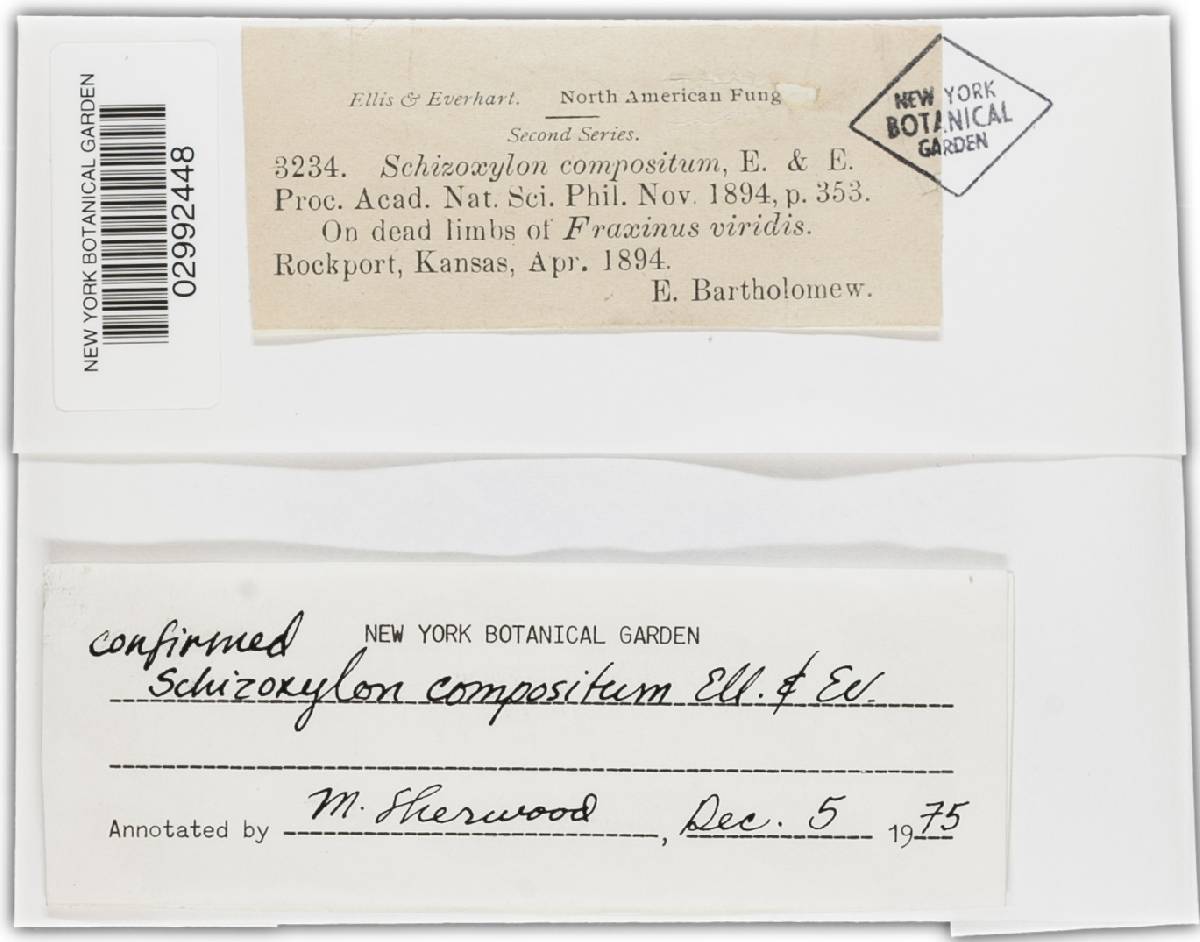 NEW YORK BOTANICAL GARDEN
02992448
Ellis & Everhart. North American Fung
Second Series.
3234. Schizoxylon compositum, E. & E.
Proc. Acad. Nat. Sci. Phil. Nov. 1894, p. 353.
On dead limbs of Fraxinus viridis.
Rockport, Kansas, Apr. 1894.
E. Bartholomew.
NEW YORK
BOTANICAL
GARDEN
confirmed NEW YORK BOTANICAL GARDEN
Schizoxylon compositum Ell. & Ev.
Annotated by M. Sherwood, Dec. 5 1975